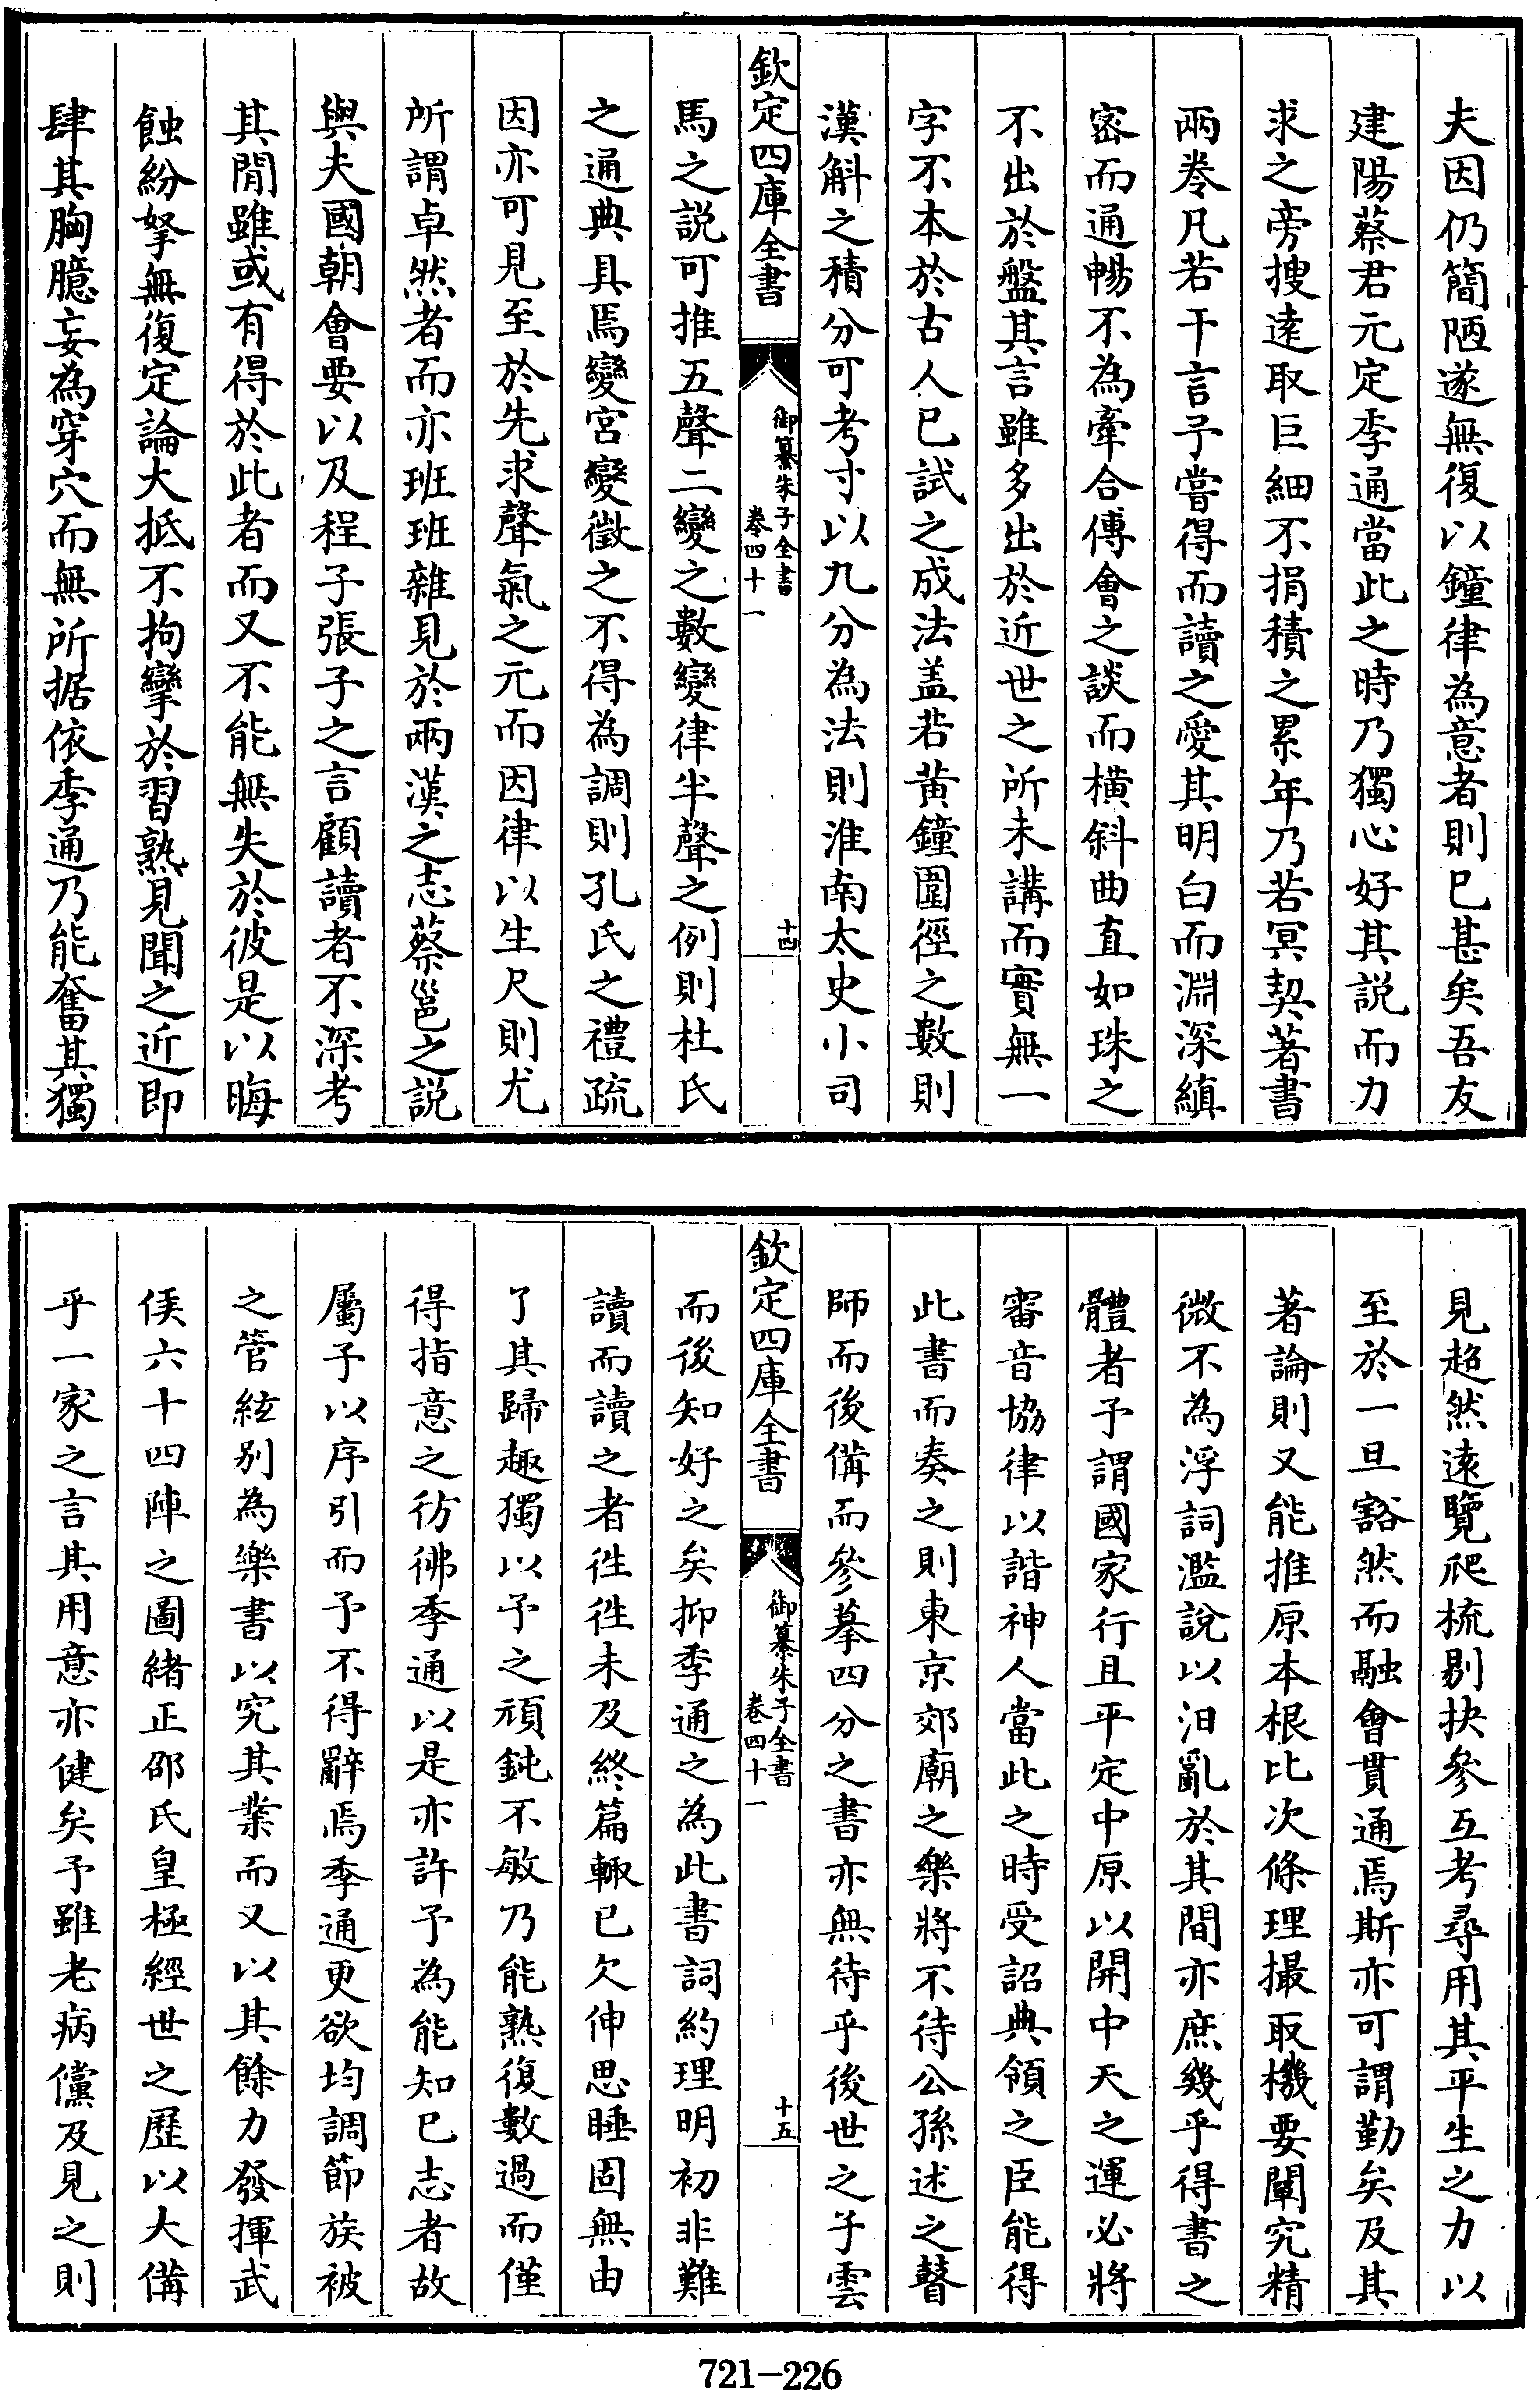 夫因仍簡陋遂無復以鐘律為意者則已甚矣吾友
建陽蔡君元定季通當此之時乃獨心好其説而力
求之旁搜逺取巨細不捐積之累年乃若冥契著書
兩卷凡若干言予嘗得而讀之愛其明白而淵深縝
密而通暢不為牽合傅會之談而横斜曲直如珠之
不出於盤其言雖多出於近世之所未講而實無一
字不本於古人已試之成法盖若黄鐘圍徑之數則
漢斛之積分可考寸以九分為法則淮南太史小司
欽定四庫全書
御纂朱子全書
卷四十一
十四
馬之説可推五聲二變之數變律半聲之例則杜氏
之通典具焉變宫變徵之不得為調則孔氏之禮疏
因亦可見至於先求聲氣之元而因律以生尺則尤
所謂卓然者而亦班班雜見於兩漢之志蔡邕之説
與夫國朝會要以及程子張子之言顧讀者不深考
其間雖或有得於此者而又不能無失於彼是以晦
蝕紛拏無復定論大抵不拘攣於習熟見聞之近即
肆其胸臆妄為穿穴而無所据依季通乃能奮其獨
見超然逺覽爬梳剔抉參互考尋用其平生之力以
至於一旦豁然而融會貫通焉斯亦可謂勤矣及其
著論則又能推原本根比次條理撮取機要闡究精
微不為浮詞濫說以汩亂於其間亦庶幾乎得書之
體者予謂國家行且平定中原以開中天之運必將
審音協律以諧神人當此之時受詔典領之臣能得
此書而奏之則東京郊廟之樂將不待公孫述之瞽
師而後備而參摹四分之書亦無待乎後世之子雲
欽定四庫全書
御纂朱子全書
卷四十一
十五
而後知好之矣抑季通之為此書詞約理明初非難
讀而讀之者徃徃未及終篇輙已欠伸思睡固無由
了其歸趣獨以予之頑鈍不敏乃能熟復數過而僅
得指意之彷彿季通以是亦許予為能知已志者故
屬予以序引而予不得辭焉季通更欲均調節族被
之管絃别為樂書以究其業而又以其餘力發揮武
侯六十四陣之圖緒正邵氏皇極經世之歴以大備
乎一家之言其用意亦健矣予雖老病儻及見之則
721-226